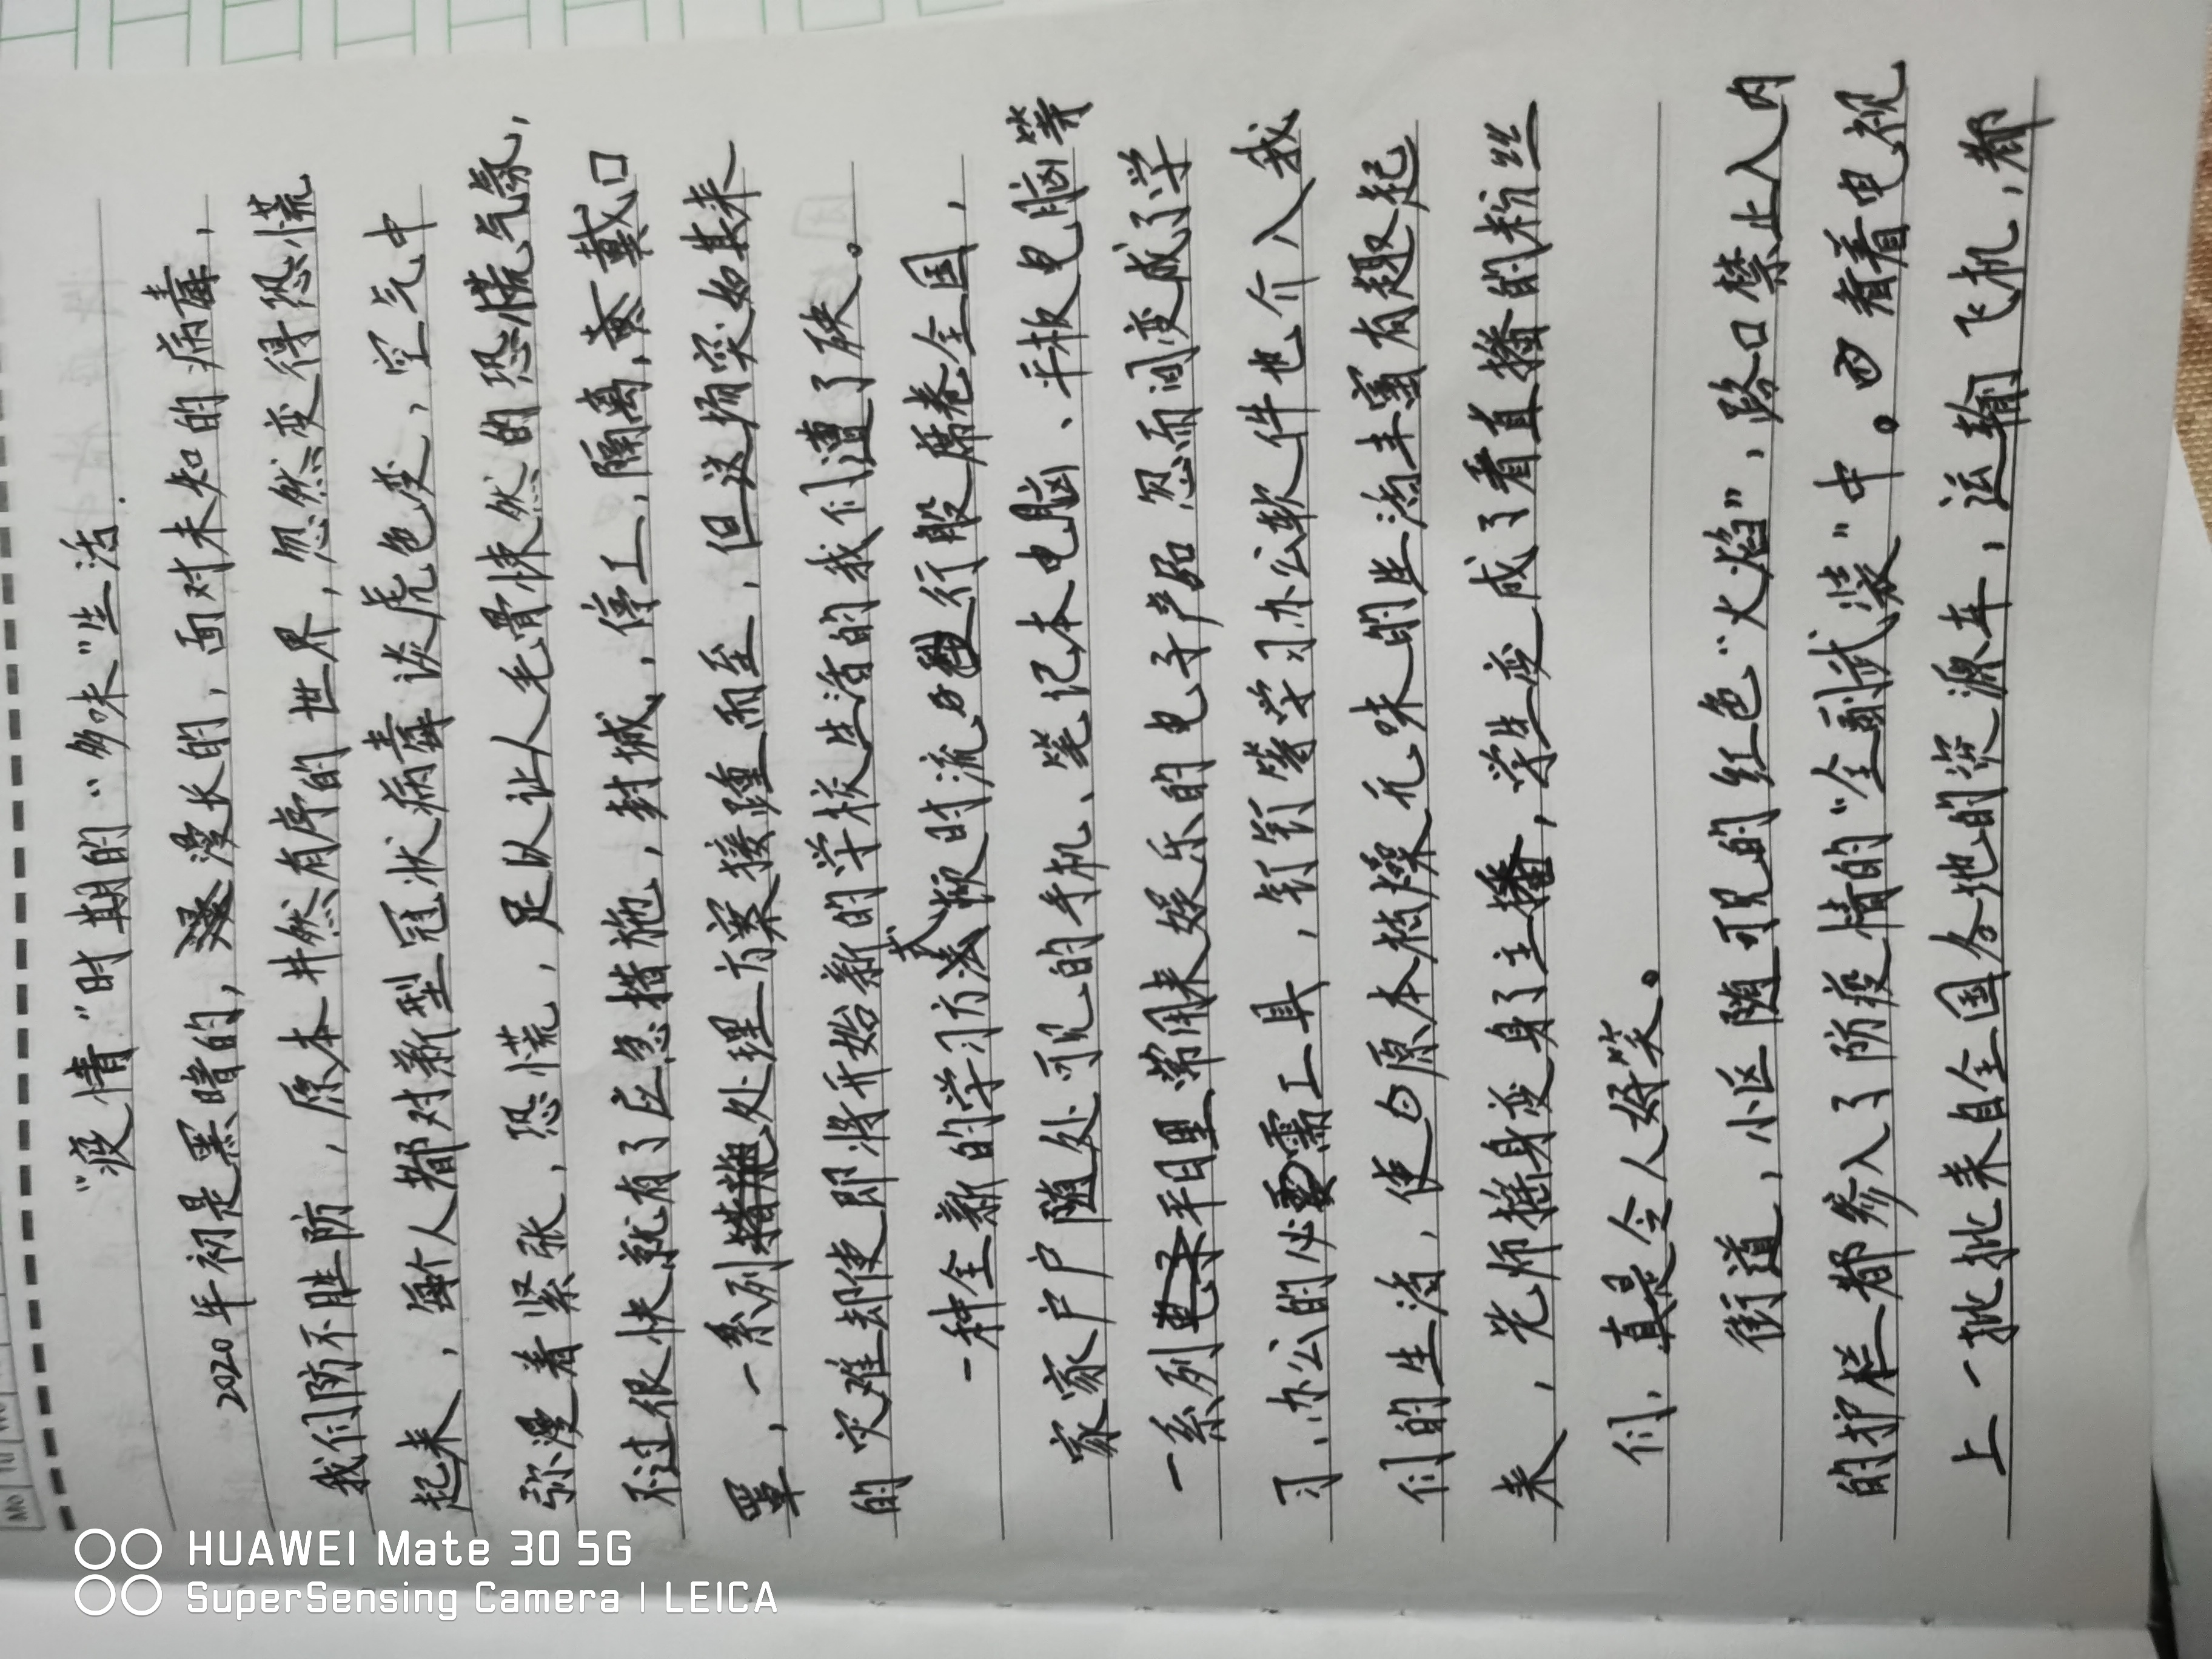 "疫情"时期的"多味"生活.
2020年初是黑暗的，漫长的，面对未知的病毒，
我们防不胜防，原本井然有序的世界，忽然变得恐慌
起来，每个人都对新型冠状病毒谈虎色变，空气中
弥漫着紧张，恐慌，足以让人毛骨悚然的恐慌气氛，
不过很快就有了应急措施，封城，停工，隔离，戴口
罩，一系列处理方案接踵而至，但这场突如其来
的灾难却使即将开始新的学校生活的我们遭了殃。
一种全新的学习方式顿时流行般席卷全国，
家家户户随处可见的手机、笔记本电脑、平板电脑等
一系列平日里常用来娱乐的电子产品忽而间变成了学
习、办公的必需工具，钉钉等学习办公软件也介入我
们的生活，使原本枯燥无味的生活丰富有趣起
来，老师摇身变身了主播，学生变成了看直播的粉丝
们，真是令人好笑。
街道，小区随可见的红色"火焰"，路口禁止入内
的护栏都参入了防疫情的"全副武装"中。看着电视
上一批批来自全国各地的资源车，运输飞机，都
HUAWEI Mate 30 5G
SuperSensing Camera | LEICA